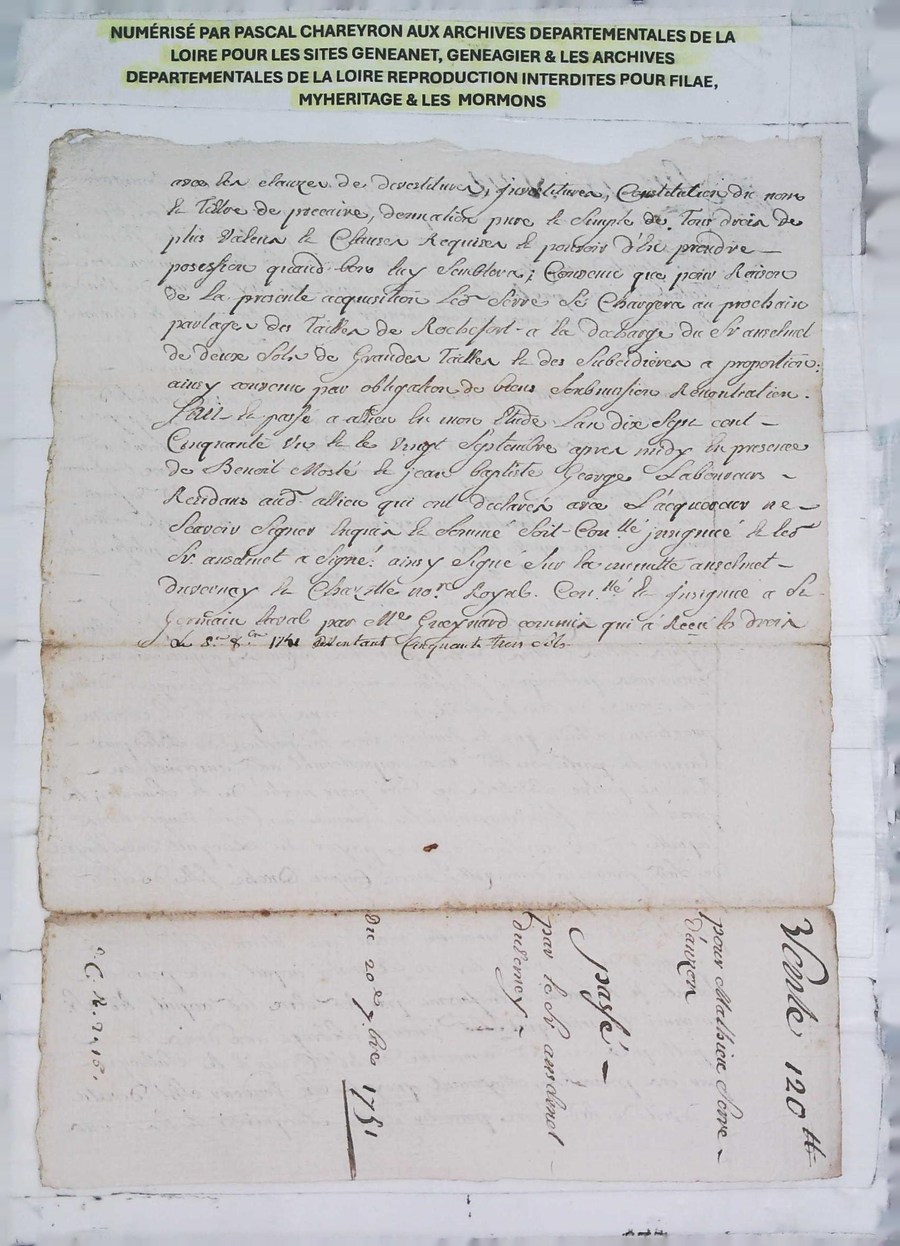 NUMÉRISÉ PAR PASCAL CHAREYRON AUX ARCHIVES DEPARTEMENTALES DE LA
LOIRE POUR LES SITES GENEANET, GENEAGIER & LES ARCHIVES
DEPARTEMENTALES DE LA LOIRE REPRODUCTION INTERDITES POUR FILAE,
MYHERITAGE & LES MORMONS
avec les clauzes de devestiture, jnvestiture, Constitution du nom
et Tiltre de precaire, donnation pure et Simple de Tous droits de
plus Valeur et Clauses Requises et pouvoir d'En prendre
posession quand bon luy Semblera; Convenu que pour Raison
de la presente acquisition led. Serre Se Chargera au prochain
partage des Tailles de Rochefort a la decharge du Sr. anselmet
de deux Sols de Grandes Tailles et des Subcidieres a proportion:
ainsy convenu par obligation de biens Soubmission Renontiation.
Fait et passé a allieu En mon Etude Lan dix Sept cent
Cinquante Un et le Vingt Septembre apres midy En presence
de Benoit et jean baptiste George Laboureurs
Residans aud. allieu qui ont declarés avec L'acquereur ne
Scavoir Signer Enquis et Sommé Soit Con.llé jnsignué et led.
Sr. anselmet a Signé: ainsy Signé Sur la minutte anselmet
duvernay et no.re Royal. Con.llé et jnsignué a St.
Germain laval par Me. commis qui a Receu les droits
Le 8.bre 1751 Cinquante trois sols
Vente 120 tt
pour Mathieu Serre
d'auzon
passé
par le Sr. anselmet
duverney
Du 20e 7.bre 1751
C. R. 2, 13.